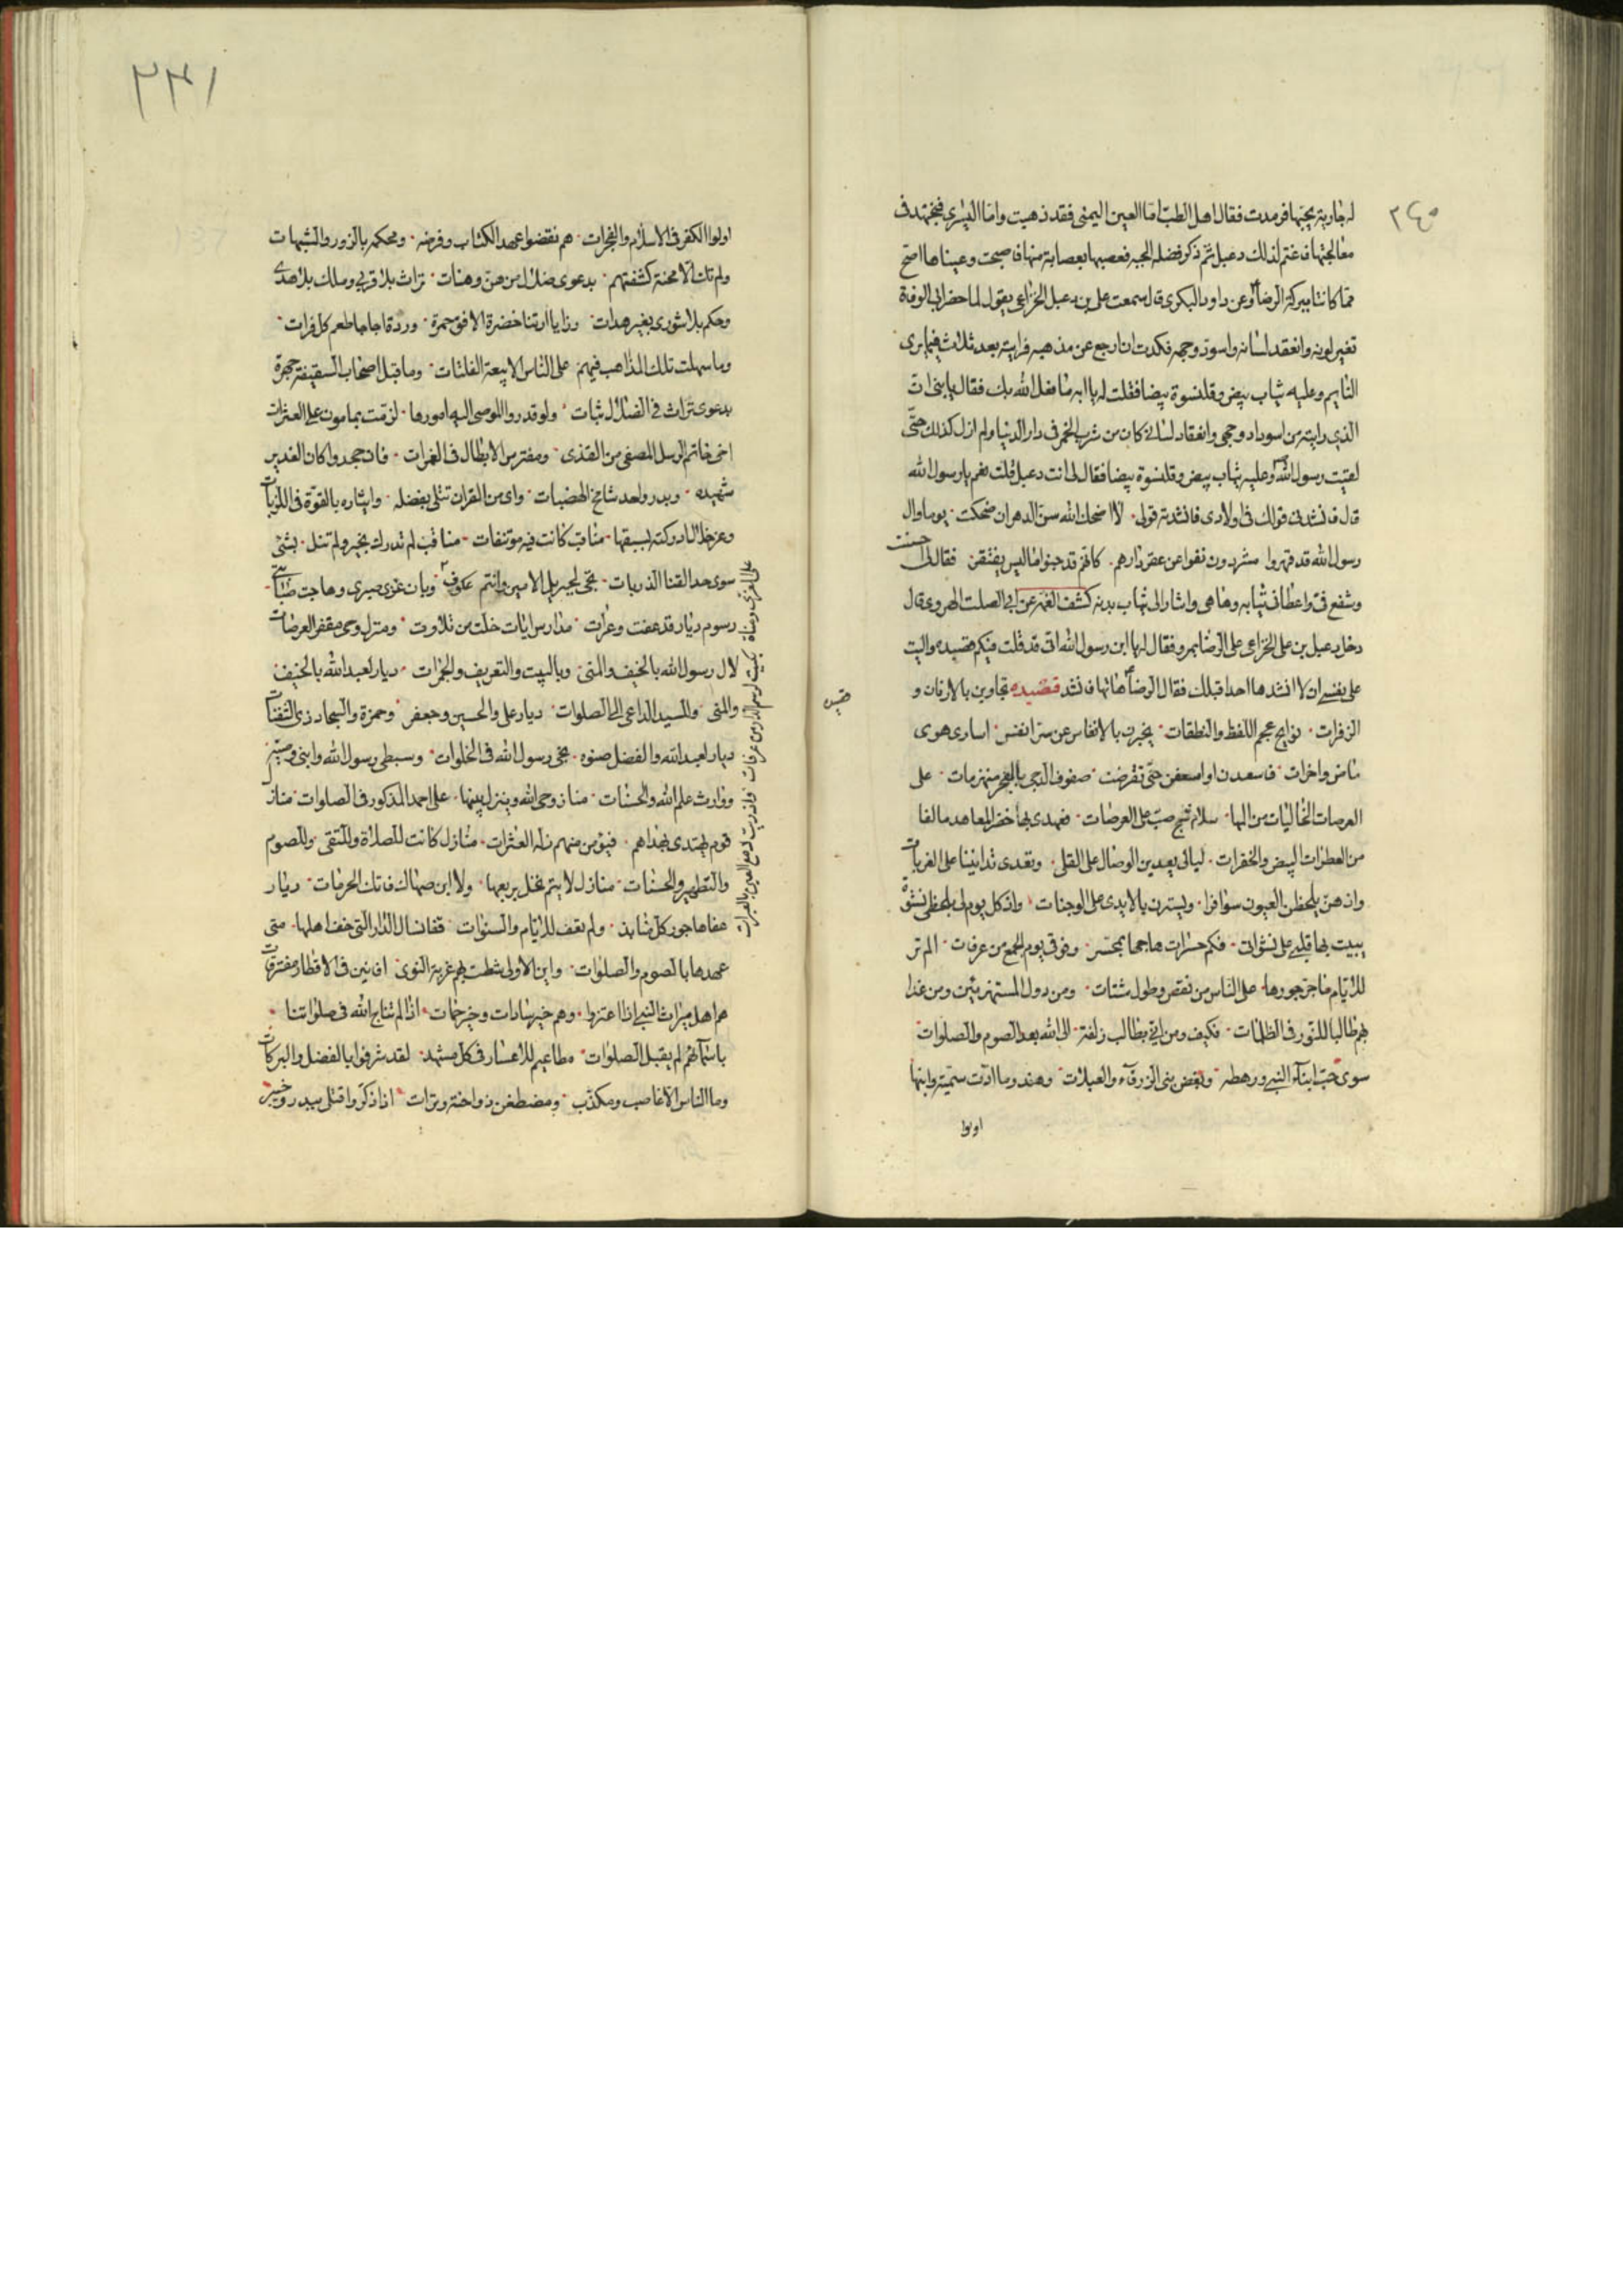 ٢٤٥
له جارية يحبها فرمدت فقال اهل الطب اما العين اليمنى فقد ذهبت واما اليسرى فنجتهد فى
معالجتها فاغتم لذلك دعبل ثم ذكر فضله الجبه فعصبها بعصابة منها فاصبحت وعيناها اصح
مما كانتا ببركة الرضا وعن داود البكرى قال سمعت على بن دعبل الخزاعى يقول لما حضر ابى الوفاة
تغير لونه وانعقد لسانه واسود وجهه فكدت ان ارجع عن مذهبه فرايته بعد ثلاث فيما يرى
النايم وعليه ثياب بيض وقلنسوة بيضا فقلت له يا ابه ما فعل الله بك فقال يا بنى ان
الذى رايته من اسوداد وجهى وانعقاد لسانى كان من شرب الخمر فى دار الدنيا ولم ازل كذلك حتى
لقيت رسول الله وعليه ثياب بيض وقلنسوة بيضا فقال لى انت دعبل قلت نعم يا رسول الله
قال فانشدنى قولك فى اولادى فانشدته قولى لا اضحك الله سن الدهر ان ضحكت يوما وال
رسول الله قد قهروا مشردون نفوا عن عقر دارهم كانهم قد جنوا ما ليس يغتفر فقال لى احسنت
وشفع فى واعطانى ثيابه وها هى واشار الى ثياب بدنه كشف الغمه عن ابى الصلت الهروى قال
دخل دعبل بن على الخزاعى على الرضا بمرو فقال له يا ابن رسول الله انى قد قلت فيكم قصيده واليت
على نفسى ان لا انشدها احدا قبلك فقال الرضا هاتها فانشد قصيده تجاوبن بالارنان و
الزفرات نوايح عجم اللفظ والنطقات يخبرن بالانفاس عن سر انفس اسارى هوى
ماض واخرات فاسعدن او اسعفن حتى تقوضت صفوف الدجى بالفجر منهزمات على
العرصات الخاليات من المها سلام شج صب على العرصات فعهدى بها خضر المعاهد مالفا
من العطرات البيض والخفرات ليالى يعدين الوصال على القلى وتعدى تدانينا على الغربات
واذ هن يلحظن العيون سوافرا ويسترن بالايدى على الوجنات واذ كل يوم لى بلحظى نشوة
يبيت بها قلبى على نشواتى فكم حسرات هاجها بمحسر وقوفى يوم الجمع من عرفات الم تر
للايام ما جر جورها على الناس من نقص وطول شتات ومن دول المستهزئين ومن غدا
بهم طالبا للنور فى الظلمات فكيف ومن انى بطالب زلفة الى الله بعد الصوم والصلوات
سوى حب ابناء النبى ورهطه وبغض بنى الزرقاء والعبلات وهند وما ادت سمية وابنها
اولوا
٢٣١
اولوا الكفر فى الاسلام والفجرات هم نقضوا عهد الكتاب وفرضه ومحكمه بالزور والشبهات
ولم تك الا محنة كشفتهم بدعوى ضلال من هن وهنات تراث بلا قربى وملك بلا هدى
وحكم بلا شورى بغير هدات رزايا ارتنا خضرة الافق حمرة وردت اجاجا طعم كل فرات
وما سهلت تلك المذاهب فيهم على الناس الا بيعة الفلتات وما قيل اصحاب السقيفة جهرة
بدعوى تراث فى الضلال ثبات ولو قدروا الموصى اليه امورها لزمت بمامون على العثرات
اخى خاتم الرسل المصفى من القذى ومفترس الابطال فى الغمرات فان جحدوا كان الغدير
شهيده وبدر واحد شامخ الهضبات واى من القران تتلى بفضله وايثاره بالقوة فى اللزبات
وعز خلال ادركته بسبقها مناقب كانت فيه موتنفات مناقب لم تدرك بخير ولم تنل بشئ
سوى حد القنا الذربات نجى لجبريل الامين وانتم عكوف
على العزى ومناة
بكيت لرسم الدار من عرفات واذريت دمع العين بالعبرات
وبان عزى صبرى وهاجت صبابتى
رسوم ديار قد عفت وعرات مدارس ايات خلت من تلاوت ومنزل وحى مقفر العرصات
لال رسول الله بالخيف والمنى وبالبيت والتعريف والجمرات ديار لعبد الله بالخيف
والمنى وللسيد الداعى الى الصلوات ديار على والحسين وجعفر وحمزة والسجاد ذى الثفنات
ديار لعبد الله والفضل صنوه نجى رسول الله فى الخلوات وسبطى رسول الله وابنى وصيه
ووارث علم الله والحسنات منازل وحى الله ينزل بينها على احمد المذكور فى الصلوات منازل
قوم يهتدى بهداهم فيؤمن منهم زلة العثرات منازل كانت للصلاة وللتقى وللصوم
والتطهير والحسنات منازل لا يتم يحل بربعها ولا ابن صهاك فاتك الحرمات ديار
عفاها جور كل منابذ ولم تعف للايام والسنوات قفا نسال الدار التى خف اهلها متى
عهدها بالصوم والصلوات واين الاولى شطت بهم غربة النوى افانين فى الاقطار مفترقات
هم اهل ميراث النبى اذا اعتزوا وهم خير سادات وخير حمات اذا لم نناج الله فى صلواتنا
باسمائهم لم يقبل الصلوات مطاعيم للاعسار فى كل مشهد لقد شرفوا بالفضل والبركات
وما الناس الا غاصب ومكذب ومضطغن ذو احنة وترات اذا ذكروا قتلى ببدر وخيبر